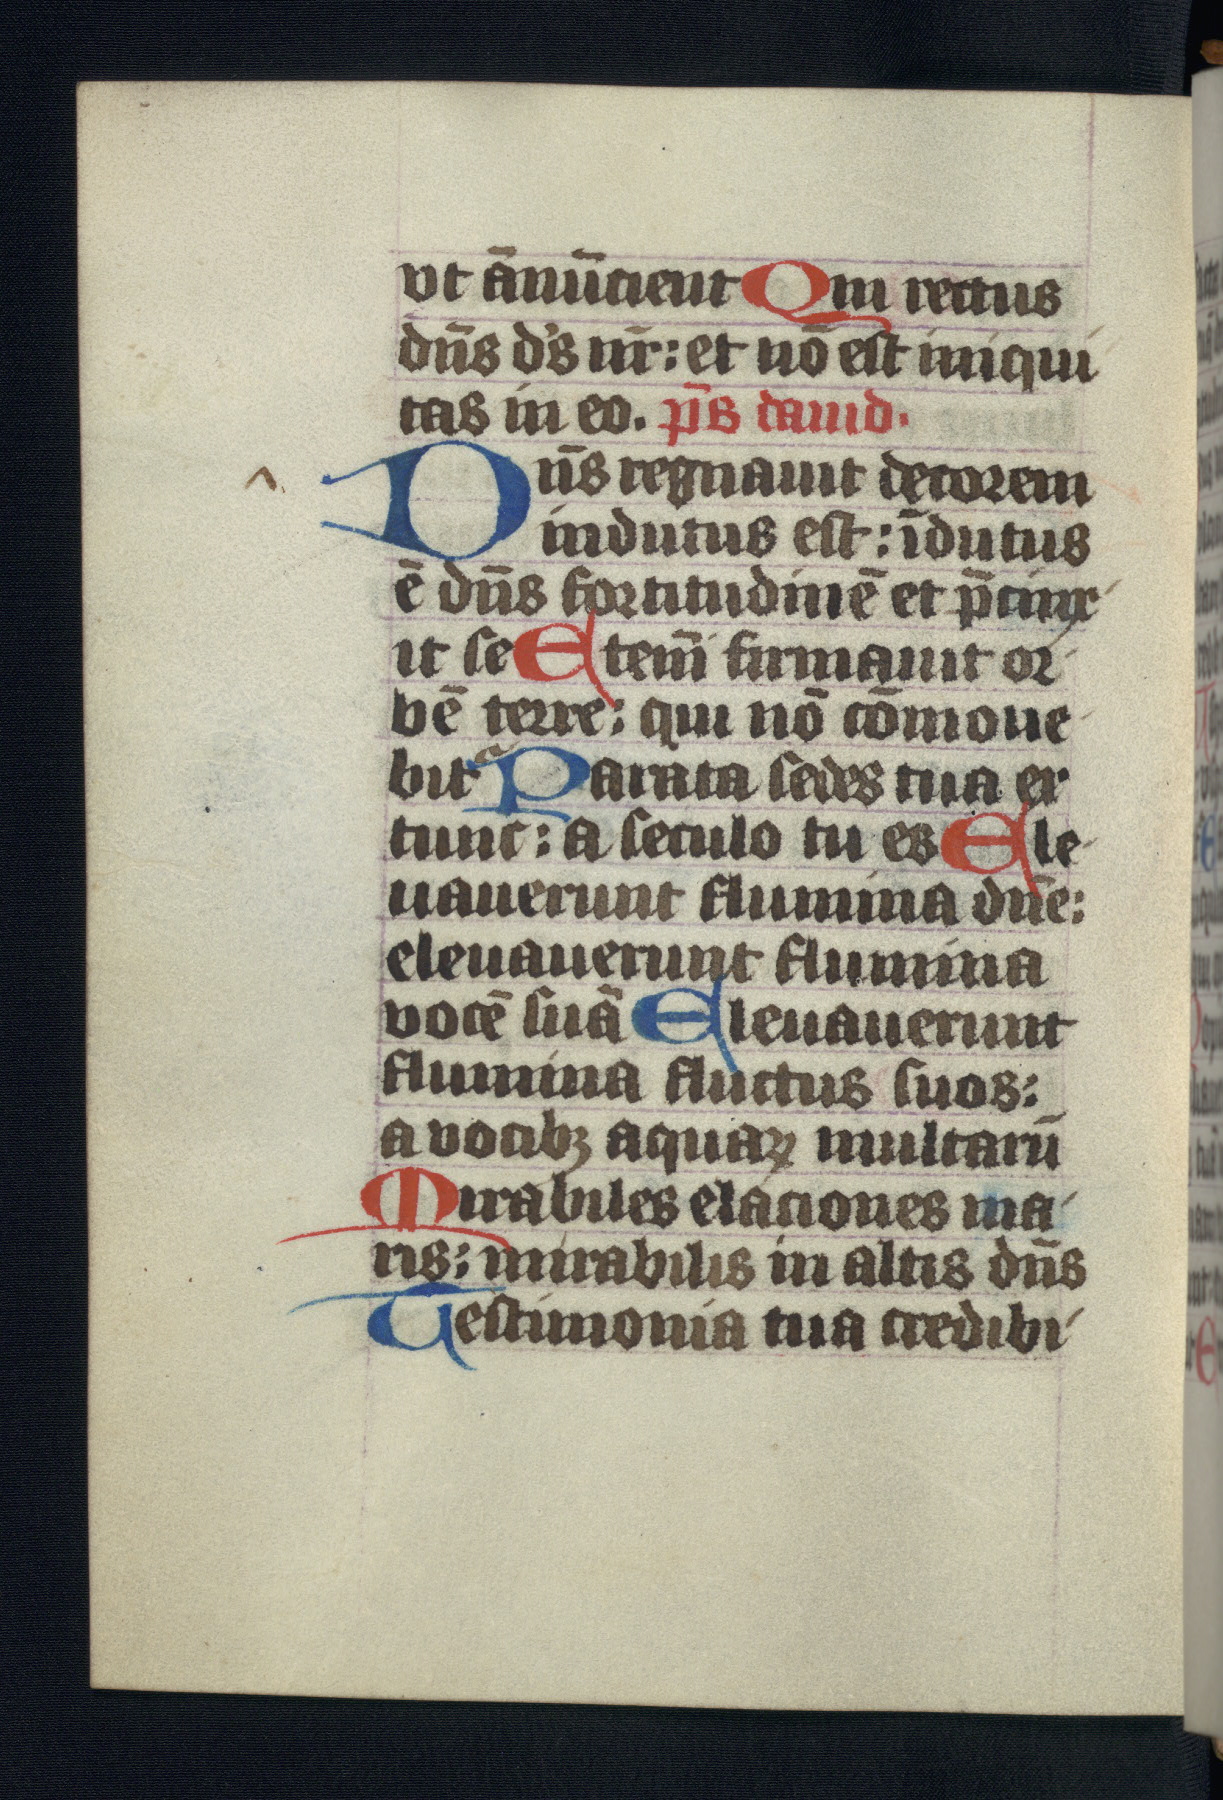 vt ānūcient Qm rectus
dn̄s d's nr̄: et nō est iniqui
tas in eo. ps̄ dauid.
Dn̄s regnauit decorem
indutus est: īdutus
ē dn̄s fortitudinē et p̄cinx
it se Etem̄ firmauit or
bē terre: qui nō cōmoue
bit Parata sedes tua ex
tunc: a seculo tu es Ele
uauerunt flumina dn̄e:
eleuauerunt flumina
vocē suā Eleuauerunt
flumina fluctus suos:
a vocibꝫ aquaꝝ multarū
Mirabiles elaciones ma
ris: mirabilis in altis dn̄s
Testimonia tua credibi